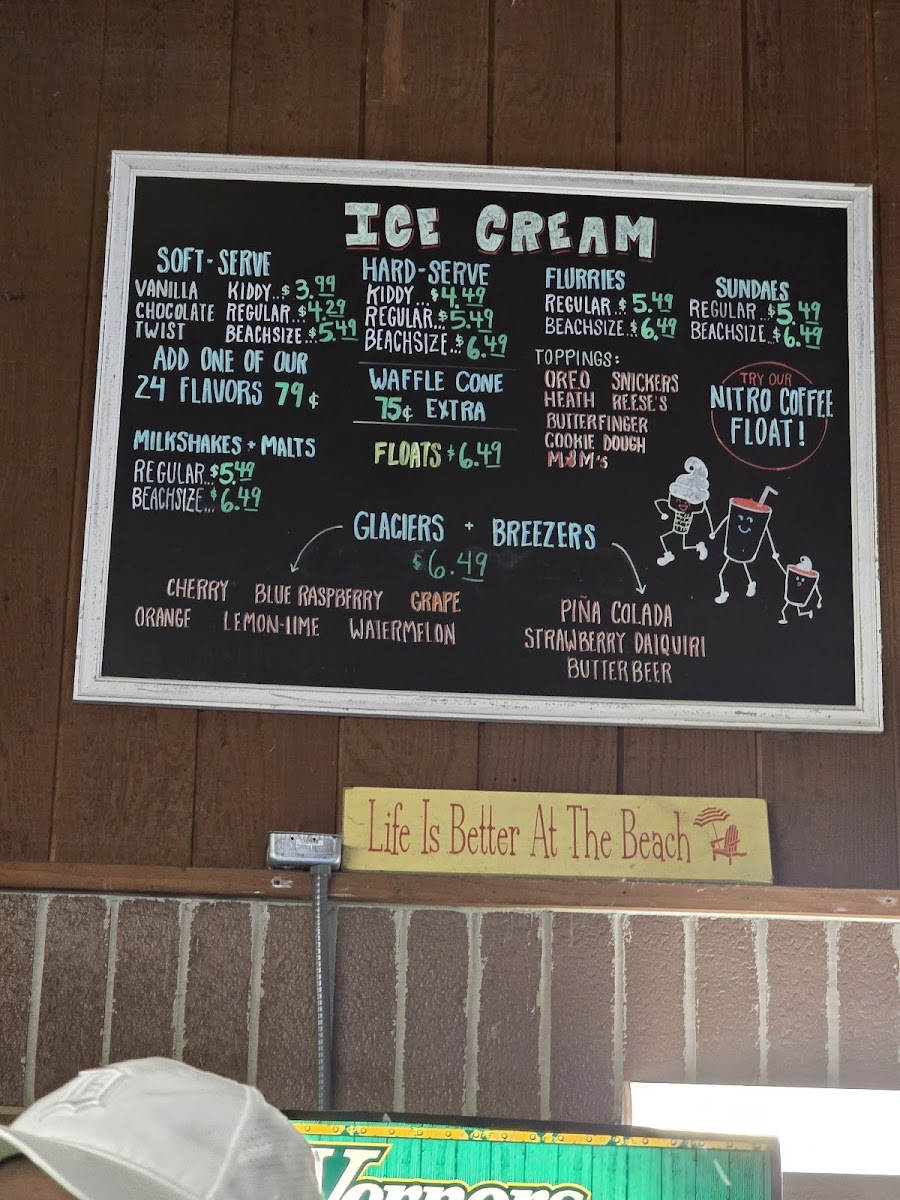 ICE CREAM
SOFT-SERVE
VANILLA KIDDY..$3.99
CHOCOLATE REGULAR..$4.29
TWIST BEACHSIZE..$5.49
ADD ONE OF OUR
24 FLAVORS 79¢
MILKSHAKES + MALTS
REGULAR..$5.49
BEACHSIZE...$6.49
HARD-SERVE
KIDDY...$4.49
REGULAR..$5.49
BEACHSIZE...$6.49
WAFFLE CONE
75¢ EXTRA
FLOATS $6.49
FLURRIES
REGULAR..$5.49
BEACHSIZE..$6.49
TOPPINGS:
OREO SNICKERS
HEATH REESE'S
BUTTERFINGER
COOKIE DOUGH
M&M's
SUNDAES
REGULAR..$5.49
BEACHSIZE..$6.49
TRY OUR
NITRO COFFEE
FLOAT!
GLACIERS + BREEZERS
$6.49
CHERRY BLUE RASPBERRY GRAPE
ORANGE LEMON-LIME WATERMELON
PIÑA COLADA
STRAWBERRY DAIQUIRI
BUTTERBEER
Life Is Better At The Beach
Vernors